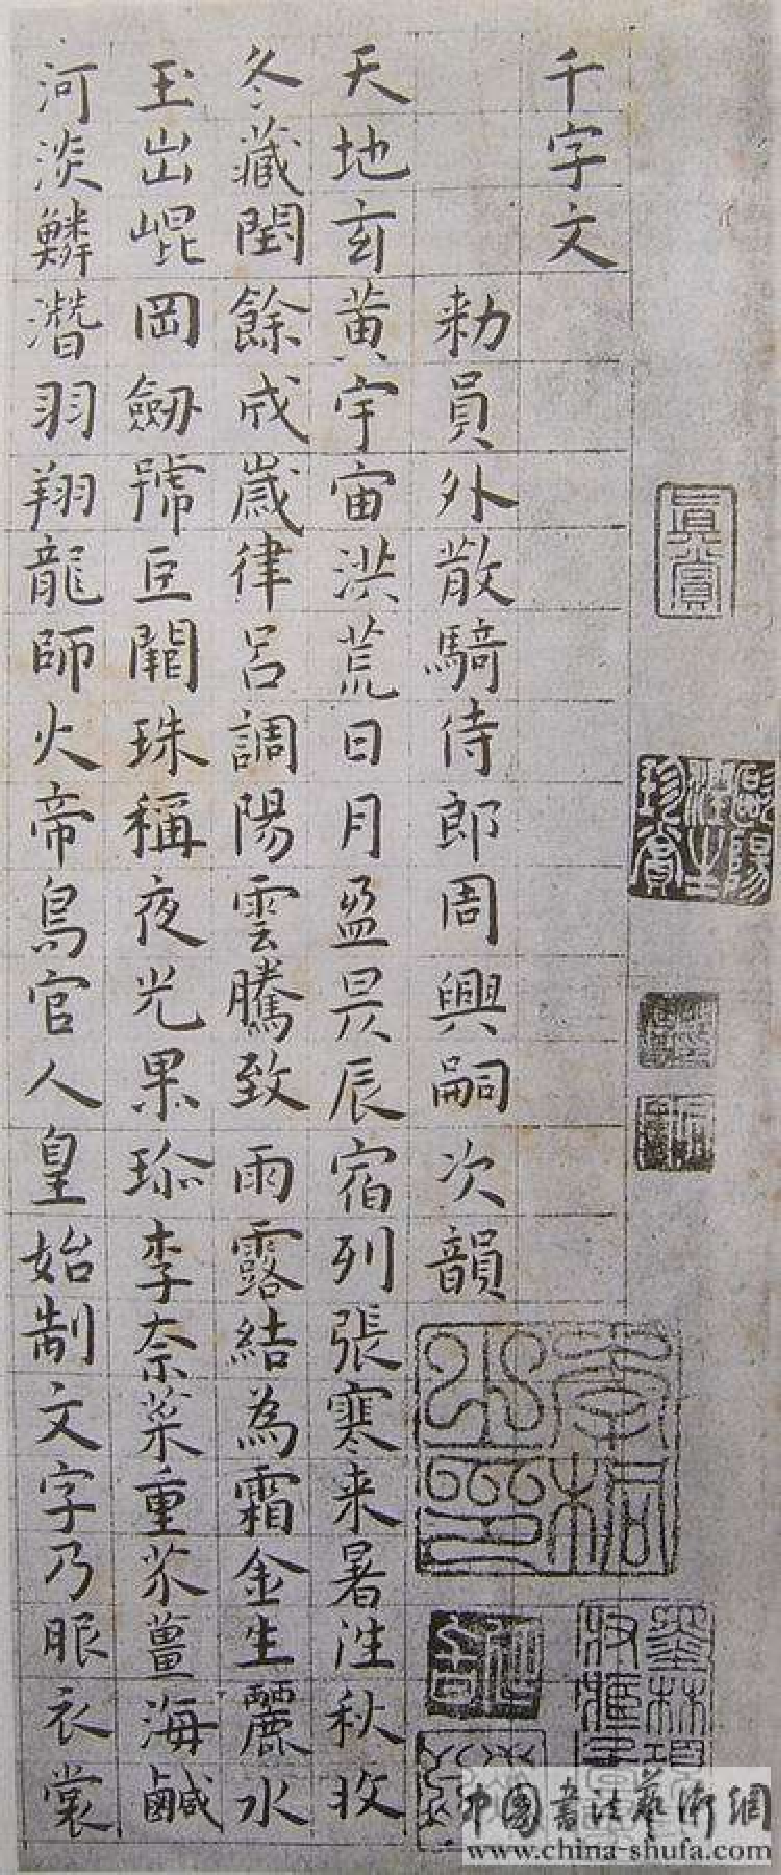 千字文
勑員外散騎侍郎周興嗣次韻
天地玄黃宇宙洪荒日月盈昃辰宿列張寒来暑往秋收
冬藏閏餘成歲律呂調陽雲騰致雨露結為霜金生麗水
玉出崐岡劔號巨闕珠稱夜光果珎李柰菜重芥薑海鹹
河淡鱗潛羽翔龍師火帝鳥官人皇始制文字乃服衣裳
真賞
中国书法艺术网
www.china-shufa.com